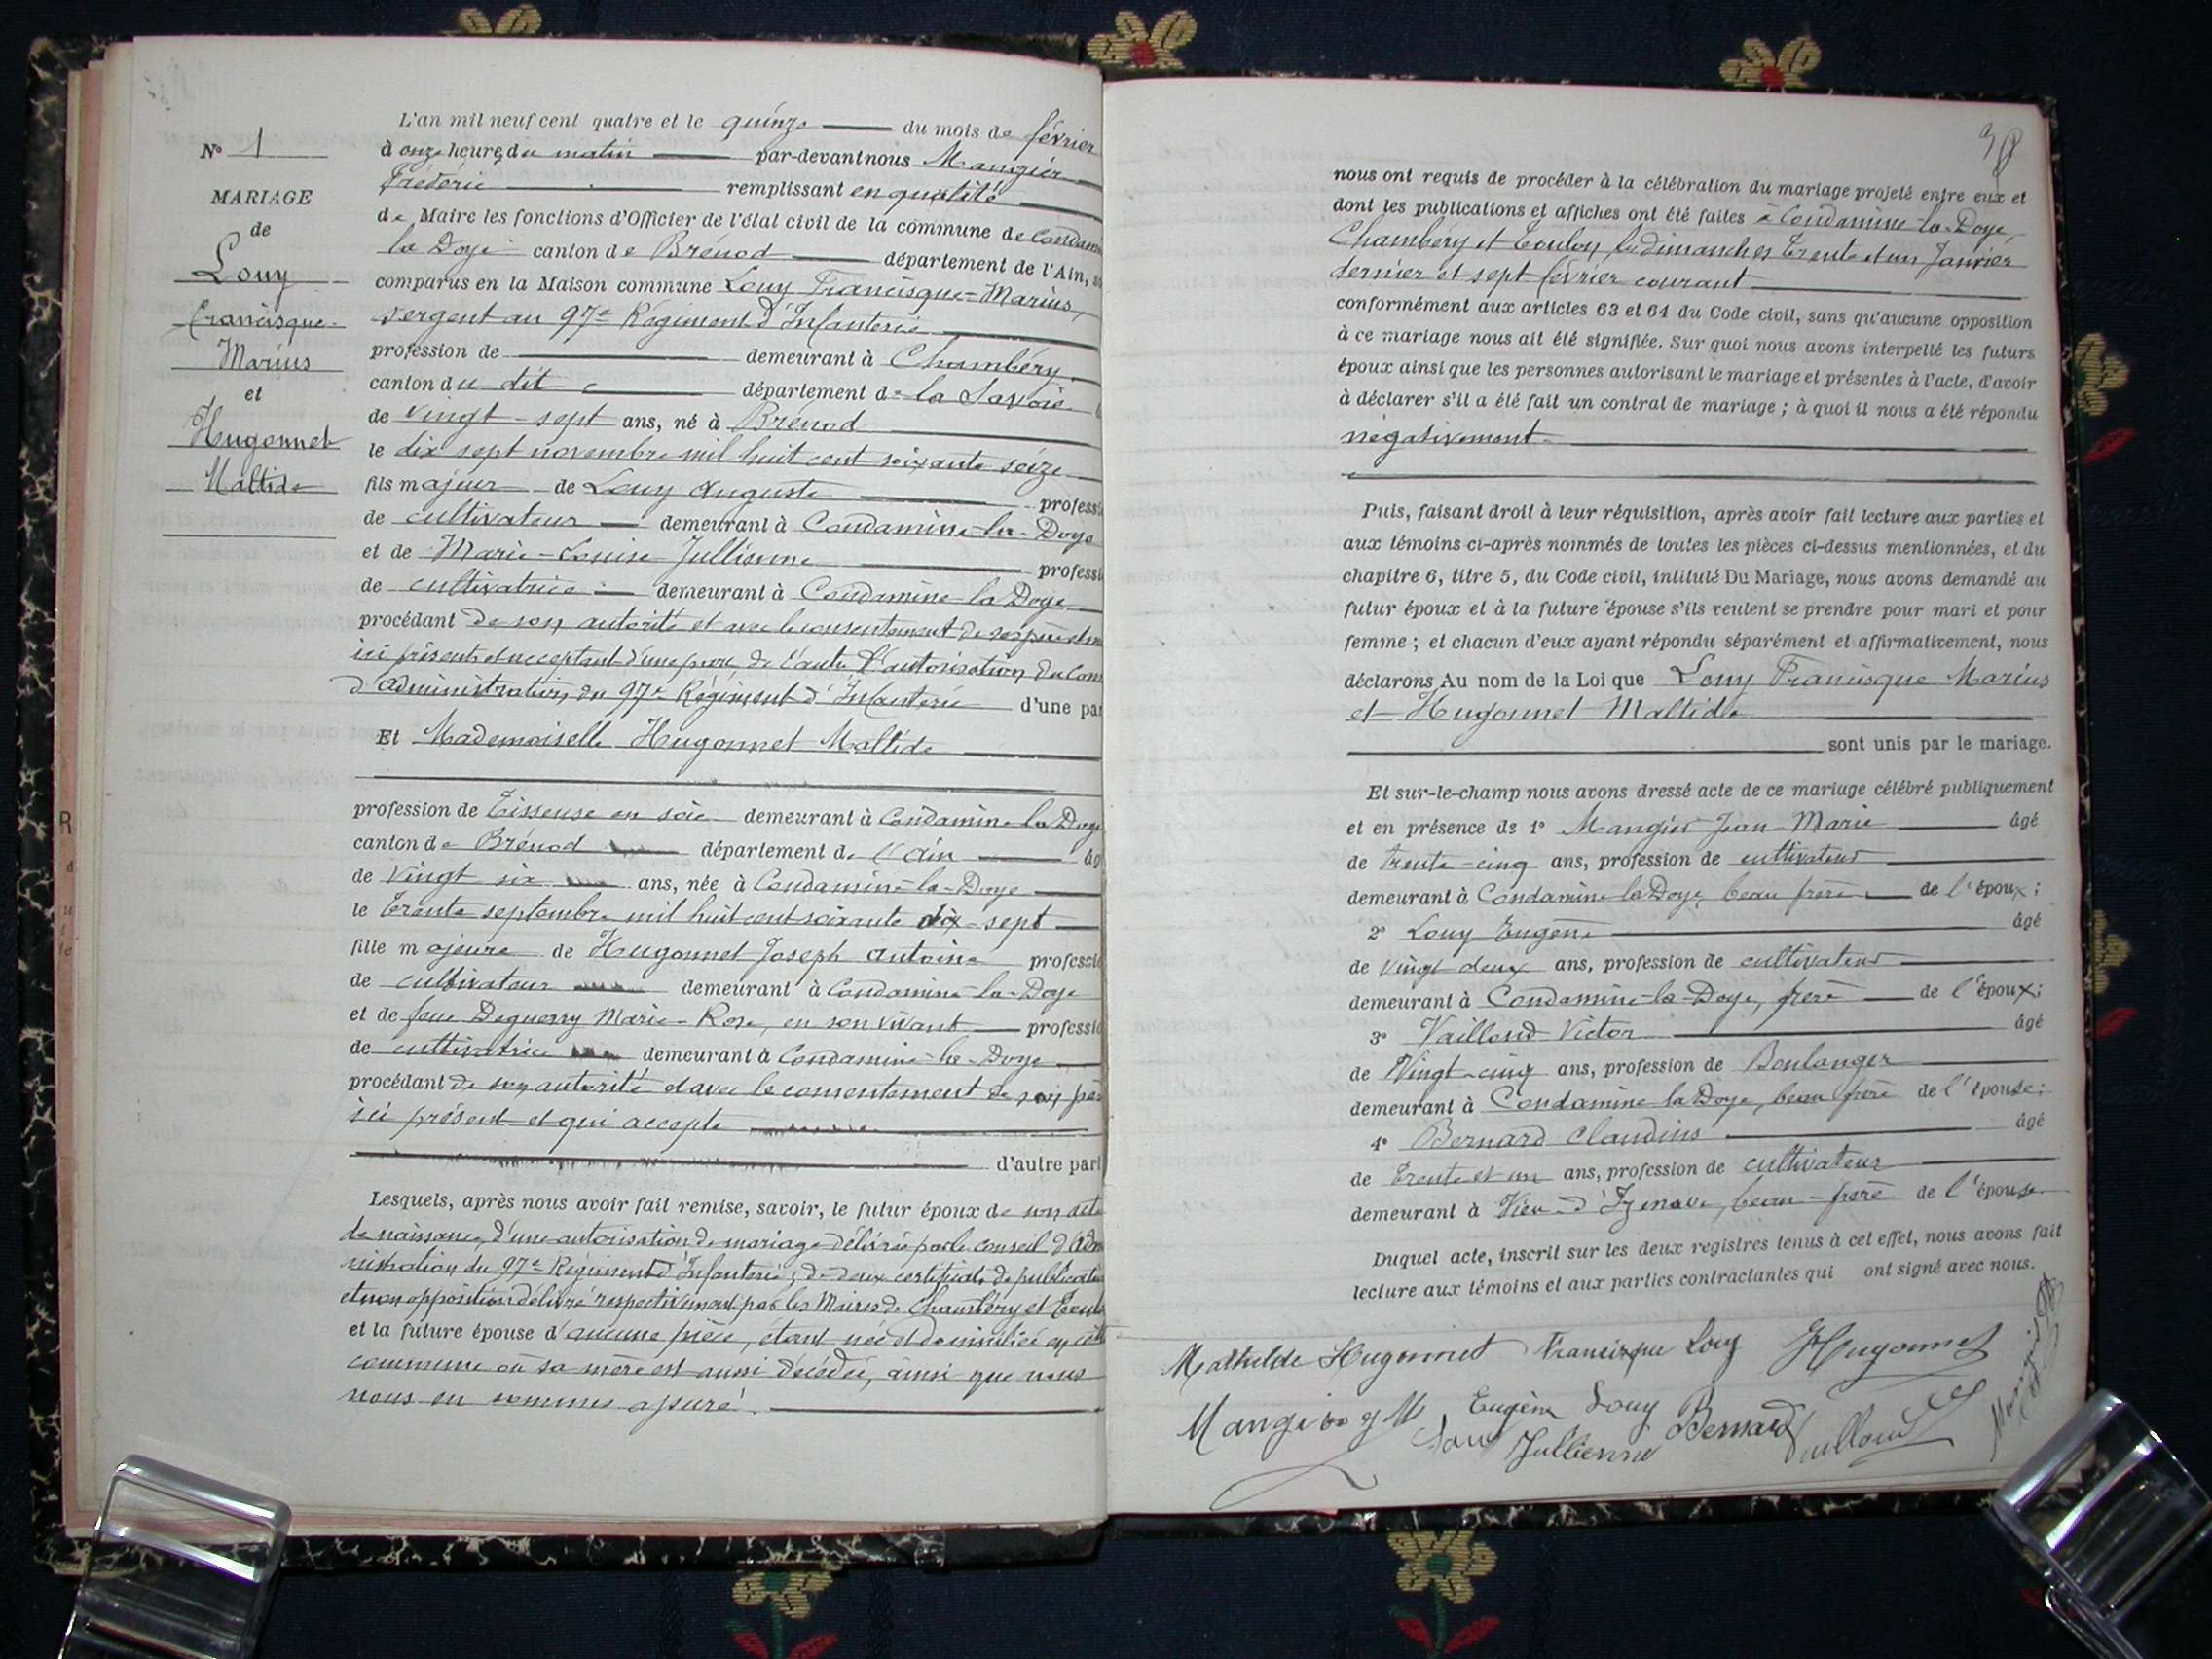 N° 1
MARIAGE
de
Louy
Francisque-
Marius
et
Hugonnet
Maltide
L'an mil neuf cent quatre et le quinze du mois de février
à onze heures du matin par-devant nous Mangier
Fréderic remplissant en qualité
de Maire les fonctions d'Officier de l'état civil de la commune de Condam
la Doye canton de Brénod département de l'Ain,
comparus en la Maison commune Louy Francisque-Marius,
sergent au 97e Régiment d'Infanterie
profession de demeurant à Chambéry
canton du dit département de la Savoie
de vingt-sept ans, né à Brénod
le dix sept novembre mil huit cent soixante seize
fils majeur de Louy Auguste professi
de cultivateur demeurant à Condamine-la-Doye
et de Marie-Louise Jullienne professi
de cultivatrice demeurant à Condamine la Doye
procédant de son autorité et avec le consentement de ses père et m
ici présents et acceptant d'une part, de l'autre l'autorisation du Con
d'administration du 97e Régiment d'Infanterie d'une par
Et Mademoiselle Hugonnet Maltide
profession de Tisseuse en soie demeurant à Condamine la Doye
canton de Brénod département de l'Ain âg
de vingt six ans, née à Condamine-la-Doye
le trente septembre mil huit cent soixante dix-sept
fille majeure de Hugonnet Joseph Antoine professio
de cultivateur demeurant à Condamine-la-Doye
et de feue Deguerry Marie-Rose, en son vivant professio
de cultivatrice demeurant à Condamine-la-Doye
procédant de son autorité et avec le consentement de son père
ici présent et qui accepte
d'autre part
Lesquels, après nous avoir fait remise, savoir, le futur époux de son acte
de naissance, d'une autorisation de mariage délivrée par le conseil d'Adm
nistration du 97e Régiment d'Infanterie, de deux certificats de publication
et non opposition délivré respectivement par les Maires de Chambéry et Toulo
et la future épouse d'aucune pièce, étant née et domiciliée en cette
commune où sa mère est aussi décédée, ainsi que nous
nous en sommes assuré.
38
nous ont requis de procéder à la célébration du mariage projeté entre eux et
dont les publications et affiches ont été faites à Condamine-la-Doye,
Chambéry et Toulon les dimanches trente et un Janvier
dernier et sept février courant
conformément aux articles 63 et 64 du Code civil, sans qu'aucune opposition
à ce mariage nous ait été signifiée. Sur quoi nous avons interpellé les futurs
époux ainsi que les personnes autorisant le mariage et présentes à l'acte, d'avoir
à déclarer s'il a été fait un contrat de mariage ; à quoi il nous a été répondu
négativement
Puis, faisant droit à leur réquisition, après avoir fait lecture aux parties et
aux témoins ci-après nommés de toutes les pièces ci-dessus mentionnées, et du
chapitre 6, titre 5, du Code civil, intitulé Du Mariage, nous avons demandé au
futur époux et à la future épouse s'ils veulent se prendre pour mari et pour
femme ; et chacun d'eux ayant répondu séparément et affirmativement, nous
déclarons Au nom de la Loi que Louy Francisque Marius
et Hugonnet Maltide
sont unis par le mariage.
Et sur-le-champ nous avons dressé acte de ce mariage célébré publiquement
et en présence de 1° Mangier Jean-Marie âgé
de trente-cinq ans, profession de cultivateur
demeurant à Condamine la Doye, beau frère de l'époux ;
2° Louy Eugène âgé
de vingt deux ans, profession de cultivateur
demeurant à Condamine-la-Doye, frère de l'époux ;
3° Vailloud Victor âgé
de Vingt-cinq ans, profession de Boulanger
demeurant à Condamine la Doye, beau frère de l'épouse ;
4° Bernard Claudius âgé
de trente et un ans, profession de cultivateur
demeurant à Vieu-d'Izenave, beau-frère de l'épouse
Duquel acte, inscrit sur les deux registres tenus à cet effet, nous avons fait
lecture aux témoins et aux parties contractantes qui ont signé avec nous.
Mathilde Hugonnet Francisque Louy Hugonnet
Mangier J M Eugène Louy Bernard
Louy Jullienne